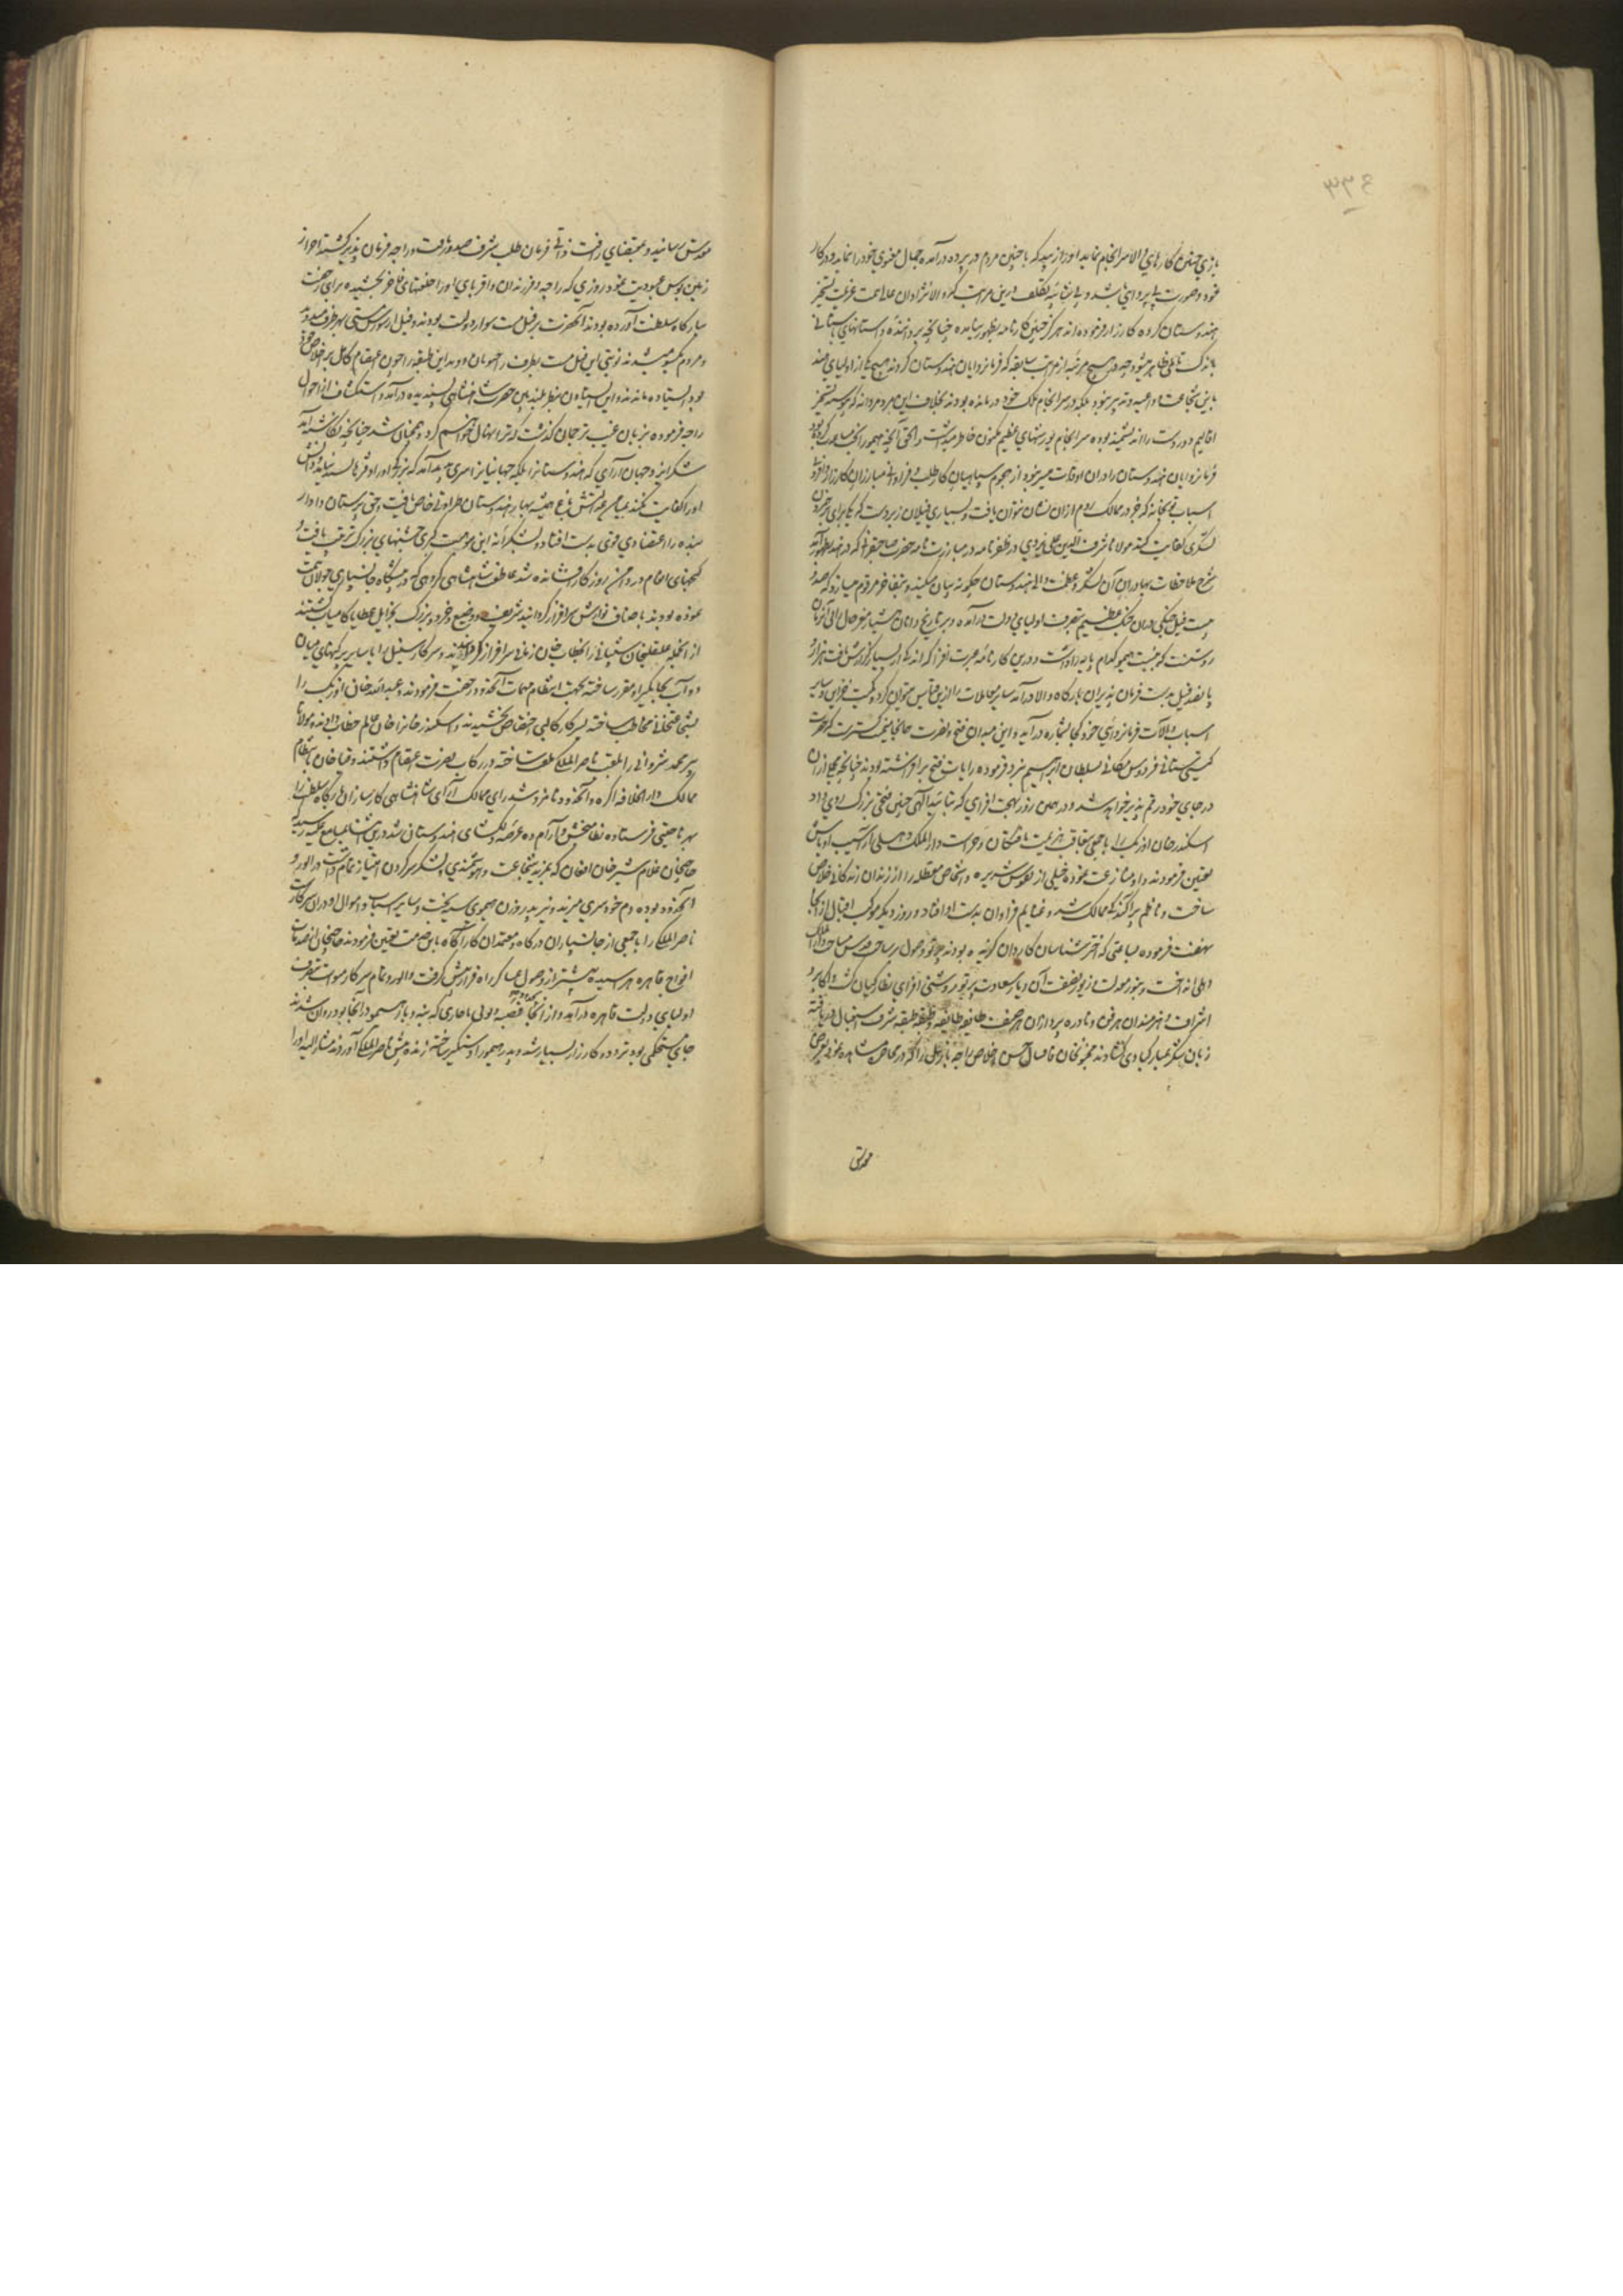 ۴۳۳
بازوی چنین کارهای والا سرانجام نماید او را از سپید که با چنین مردم در پرده درآمده جمال معنوی خود را نماید و در کار
خود و صورت بی پروایی باشد و بی شائبه تکلف درین مراتب که والانژادان عالی همت عزیمت تسخیر
هندوستان کرده کارزار فرموده اند هرگز چنین کارنامه بظهور نیامده چنانچه بر دانندۀ داستانهای باستانی
باندک تأملی ظاهر میشود چه در هیچ مرتبه از مراتب سابقه که فرمانروایان هندوستان کردند هیچ یکی از اولیای هند
باین شجاعت و داعیه و تدبیر نبود بلکه در سرانجام ملک خود درمانده بودند بخلاف این مرد مردانه که پیوسته تسخیر
اقالیم دوردست را اندیشمند بوده سرانجام یورشهای عظیم مکنون خاطر میداشت و الحق آنچه هیمو را انجا مساعدت کرده بود
فرمانروایان هندوستان را در آن اوقات میسر نبود از هجوم سپاهیان کارطلب و فراوانی مبارزان کارزار و افزونی
اسباب توپخانه که جز در ممالک روم از آن نشان نتوان یافت و بسیاری فیلان زبردست که یکی برای برهم زدن
لشکری کفایت کند مولانا شرف الدین علی یزدی در ظفرنامه در مبارزت نامه حضرت صاحبقرانی که در هند بظهور آمد
شرح ملاحظات بهادران آن لشکر و عظمت والی هندوستان چگونه بیان میکند و بتفاخر مرقوم میسازد که صد و
بیست فیل جنگی در آن جنگ عظیم بتصرف اولیای دولت درآمده و بر تاریخ دانان هشیار مغز حال والی آنزمان
روشنست که بنسبت هیمو کدام پایه را داشت و درین کارنامه عبرت افزا که اندکی از بسیار گزارش یافت هزار و
پانصد فیل بدست فرمان پذیران بارگاه والا درآمد سایر معاملات را ازین قیاس میتوان کرد و کمیت خزاین و سایر
اسباب و آلات فرمانروایی خود کی بشماره درآید و این میدان فتح و نصرت همانجا نیست که حضرت
گیتی ستانی فردوس مکانی با سلطان ابراهیم نبرد فرموده رایات فتح برافراشته بودند چنانچه مجملی از آن
در جای خود رقم پذیر خواهد شد و در همین روز بهجت افزای که بتائید الهی چنین فتحی بزرگ روی داد
اسکندر خان اوزبک را با جمعی بتعاقب هزیمت یافتگان و حراست دارالملک دهلی از آسیب اوباش
تعیین فرمودند و او منازعت نموده خیلی از نفوس شریره و اشخاص معطله را از زندان زندگانی خلاص
ساخت و ناظم پراگندگی ممالک شد و غنایم فراوان بدست او افتاد و روز دیگر موکب اقبال از انجا
نهضت فرموده بساعتی که اخترشناسان کاردان گزیده بودند پرتو وصول بر ساحت دارالملک
دهلی انداخت و بنور معدلت و زیور نصفت آن دیار سعادت پرتو روشنی افزای نظارگیان گشت و اکابر و
اشراف و هنرمندان هر فن و نادره پردازان هر صنعت طایفه طایفه و طبقه طبقه شرف استقبال دریافته
زبان بشکر و مبارکبادی گشادند مجنون خان قاقشال حسن اخلاص راجه بارمل را که در محاصره مشاهده نموده بود بعرض
مقدس
مقدس رسانید و بمقتضای رافت ذاتی فرمان طلب شرف صدور یافت و راجه فرمان پذیر گشته احراز
زمین بوس عبودیت نمود روزی که راجه و فرزندان و اقربای او را خلعتهای فاخر بخشیده برای رخصت
ببارگاه سلطنت آورده بودند آنحضرت بر فیل مست سوار دولت بودند و فیل از سورش مستی بهر طرف میدوید
و مردم یکسو میشدند نوبتی این فیل مست بطرف راجپوتان دوید این طبقه را چون اعتصام کامل بر اخلاص خود
بود ایستاده ماندند و این ایستادن بنظر بلندبین حضرت شاهنشاهی پسندیده درآمد و استکشاف از احوال
راجه فرموده بزبان غیب ترجمان گذشت که ترا نهال خواهیم کرد و همچنان شد چنانچه نگاشته آید
شکر ایزد جهان آرای که هندوستانرا بلکه جهانیانرا سری پدید آمد که بزرگی او را او فرهای پسندیده و دانش
او را کفایت کند بمیامن عدالتش باغ همیشه بهار هندوستان طراوتی خاص یافت و حق پرستان دادار
بنده را اعتضادی قوی بدست افتاد و بشکرانه این موهبت کبری جشنهای بزرگ ترتیب یافت و
گنجهای انعام در دامن روزگار فشانده شد عاطفت شاهنشاهی گروهی که در پیشگاه جانسپاری جولان همت
نموده بودند باصناف نوازش سرافراز گردانید شریف و وضیع و خرد و بزرگ بجزایل عطایا کامیاب گشتند
از انجمله علیقلیخان شیبانی را بخطاب خان زمانی سرافراز گردانیدند و سرکار سنبل را با سایر پرگنهای میان
دوآب بجایگیر او مقرر ساخته بجهت انتظام مهمات آنحدود رخصت فرمودند و عبدالله خان اوزبک را
بشجاعتخانی مخاطب ساخته سرکار کالپی اختصاص بخشیدند و اسکندر خانرا خان عالم خطاب دادند و مولانا
پیر محمد شروانی را بلقب ناصر الملکی ملقب ساخته در رکاب نصرت اعتصام داشتند و قیا خان بانتظام
ممالک دارالخلافه آگره و آنحدود نامزد شد رای ممالک آرای شاهنشاهی کارسازان بارگاه سلطنت را
بهر ناحیتی فرستاده نظام بخش و آرام ده عرصه دلگشای هندوستان شد درین اثنا بمسامع علیه رسید که
حاجیخان غلام شیر خان افغان که بمزید شجاعت و هوشمندی و لشکر سر کردن امتیاز تمام داشت در الور و
آنحدود بوده دم خودسری میزند و نیز پدر و زن هیموی سیه بخت و سایر اسباب و اموال او در آن سرکارست
ناصر الملک را با جمعی از جانسپاران درگاه و معتمدان کارآگاه باین خدمت تعیین فرمودند حاجیخان از صدمات
افواج قاهره هراسیده پیشتر از وصول عساکر راه فرار پیش گرفت و الور و تمام سرکار میوات بتصرف
اولیای دولت قاهره درآمد و از انجا بقصبه دیولی ماجاری که بنه و بار هیمو در انجا بود روان شدند
جای مستحکمی بود تردد و کارزار بسیار شد و پدر هیمو را دستگیر ساخته زنده پیش ناصر الملک آوردند مشارالیه او را